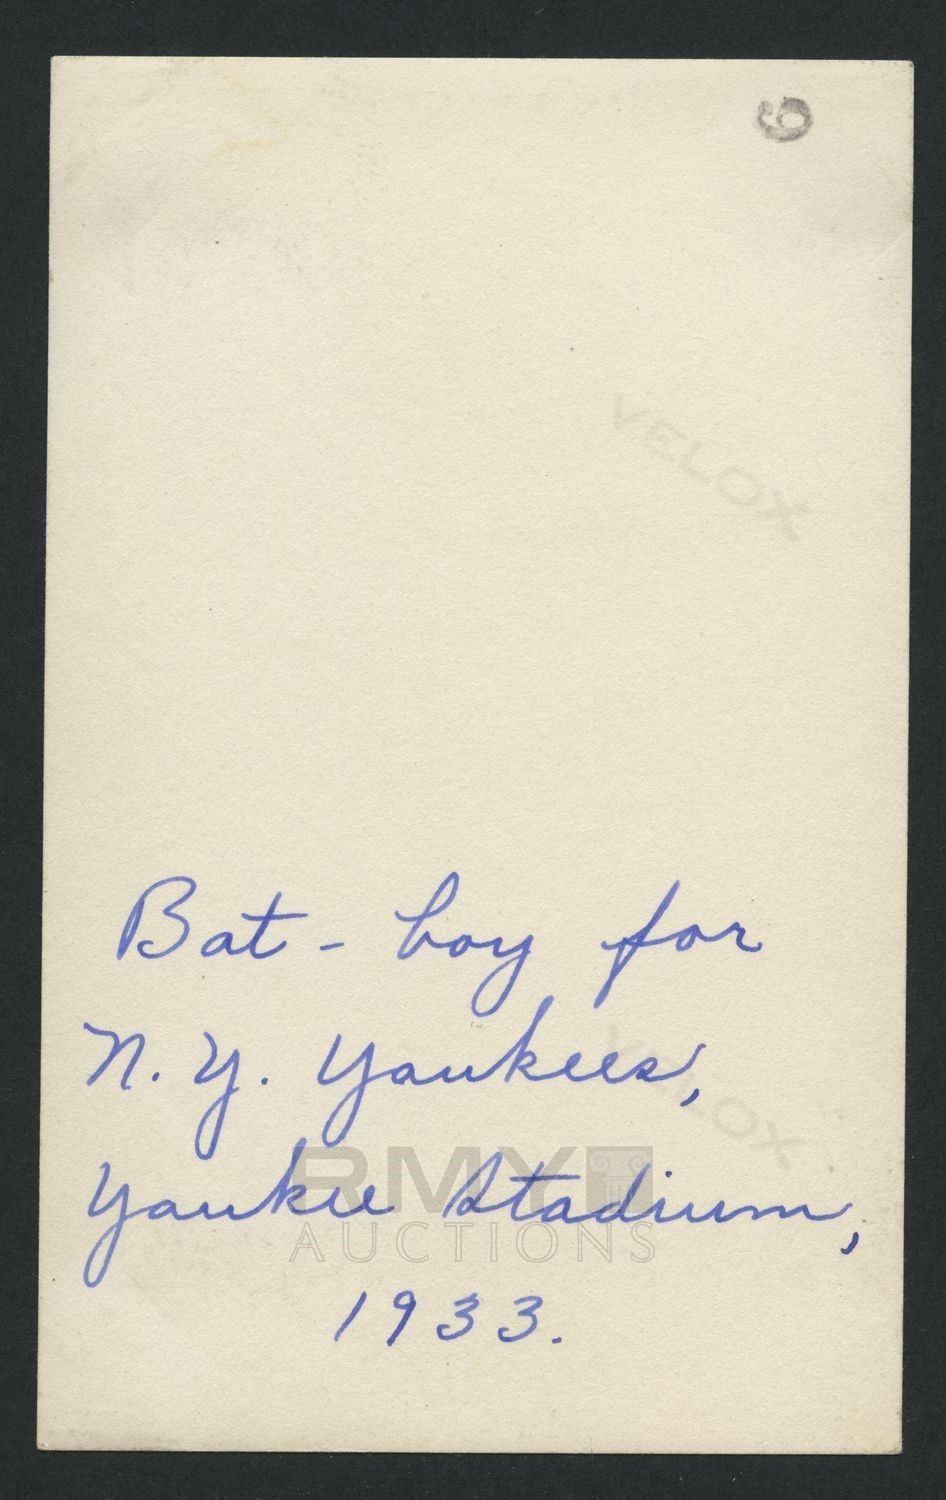 6
VELOX
Bat - boy for
N. Y. Yankees,
VELOX
Yankee Stadium,
RMY
AUCTIONS
1933.